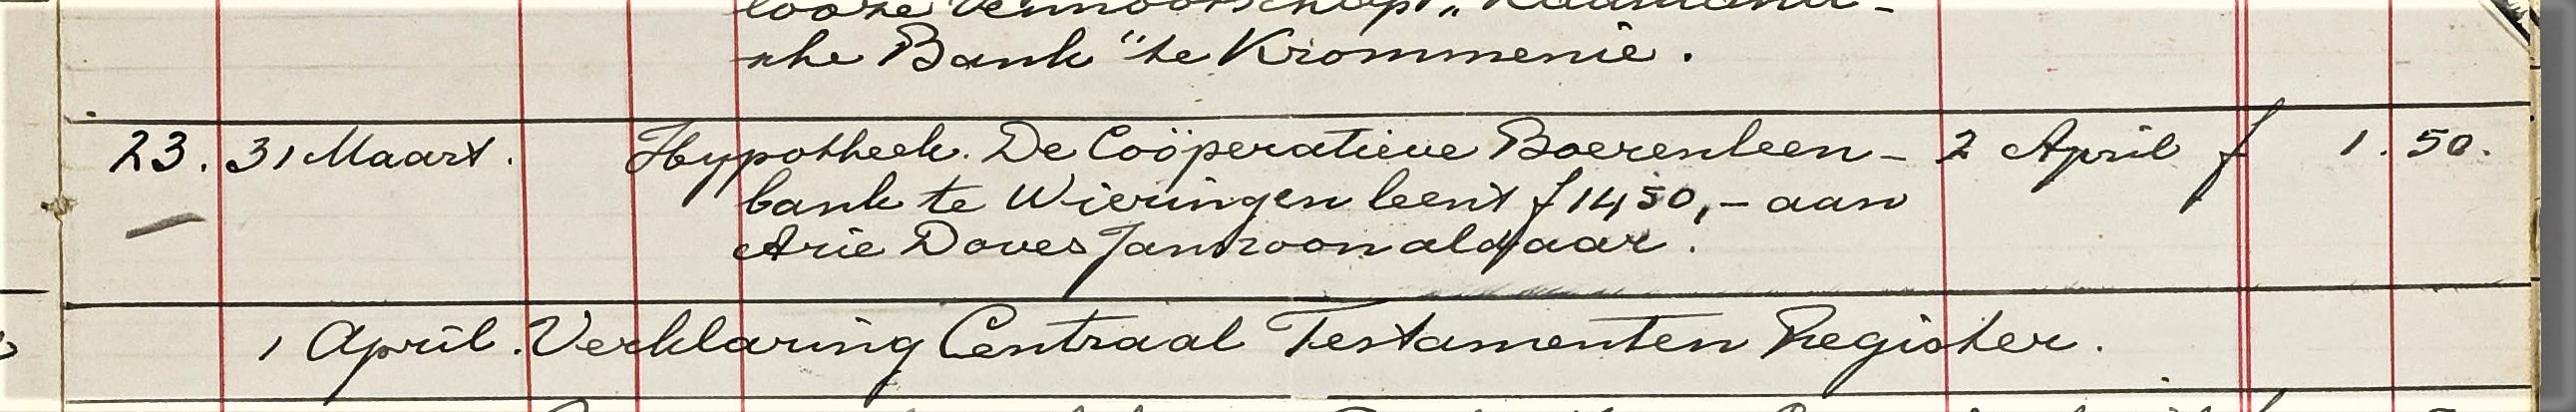 looze Vennootschap „
sche Bank" te Krommenie.
23. 31 Maart. Hypotheek. De Coöperatieve Boerenleen- 2 April f 1.50.
bank te Wieringen leent f 1450,- aan
Arie Doves Janszoon aldaar.
1 April. Verklaring Centraal Testamenten Register.